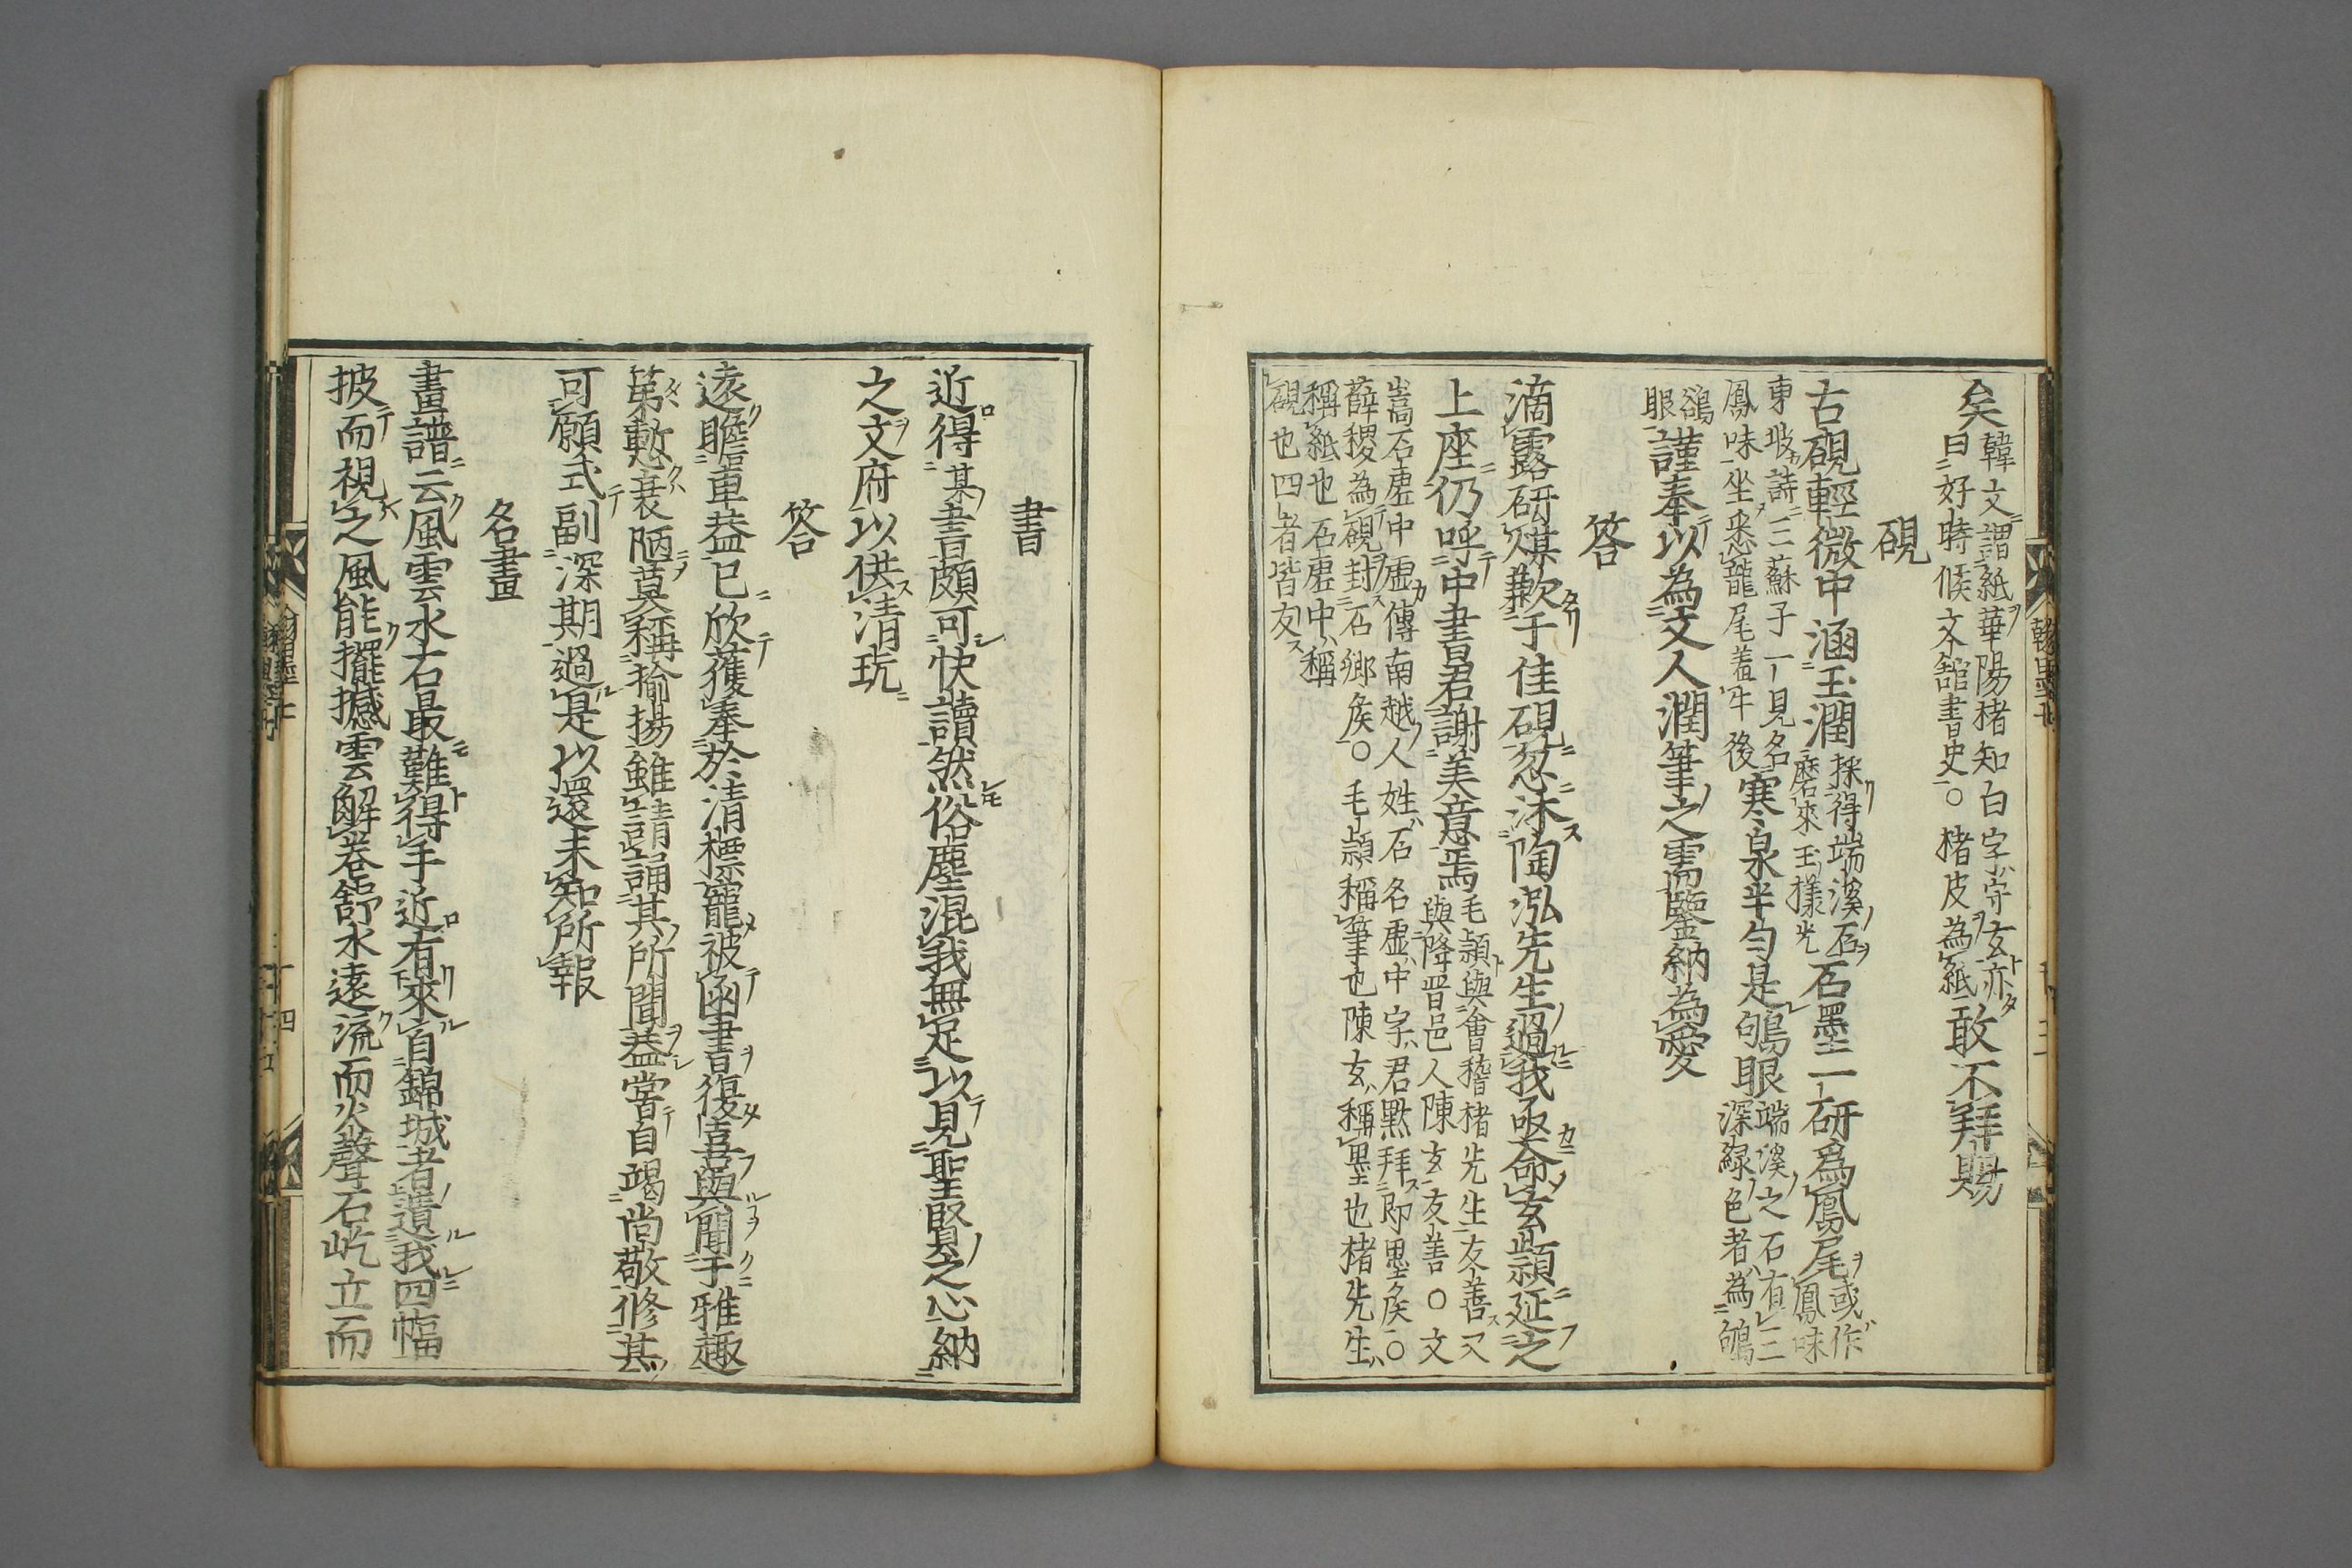 矣韓文謂紙華陽楮知白字守玄亦
曰好時候文舘書史○楮皮為紙敢不拜賜
硯
古硯輕微中涵玉潤採得端溪石
磨來玉樣光石墨一研為鳳尾或作
鳳味
東坡詩三蘇子一見名
鳳味坐悉龍尾羞牛後寒泉半勻是鴝眼端溪之石有三
深緑色者為鴝
鵒
眼謹奉以為文人潤筆之需鑒納為愛
答
滴露研煤歉于佳硯忽沐陶泓先生過我亟命玄穎延之
上座仍呼中書君謝美意焉毛頴與會稽楮先生友善又
與降晋邑人陳玄友善○文
嵩石虚中虚傳南越人姓石名虚中字君黙拜即墨矦○
薛稷為硯封石郷矦○毛頴稱筆也陳玄稱墨也楮先生
稱紙也石虚中稱
硯也四者皆友
書
近得某書頗可快讀然俗塵混我無足以見聖賢之心納
之文府以供清玩
答
遠瞻車葢已欣獲奉於清標寵被函書復喜與聞于雅趣
第慙衰陋莫稱揄揚雖請誦其所聞葢當自竭尚敬修其
可願式副深期過是以還未知所報
名畫
畫譜云風雲水石最難得手近有來自錦城者遺我四幅
披而視之風能擺撼雲觧卷舒水遠流而火聲石屹立而